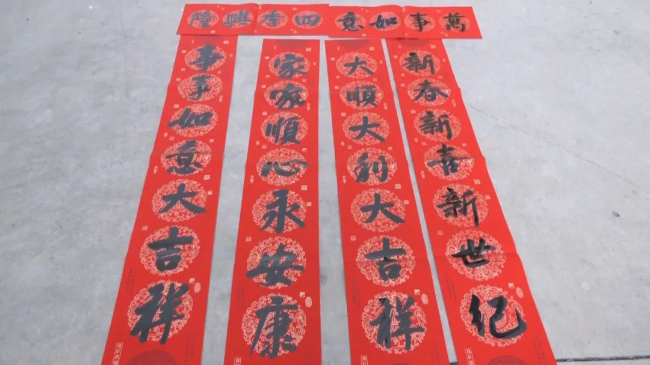 萬事如意
四季興隆
新春新喜新世纪
大順大利大吉祥
家家順心永安康
事事如意大吉祥